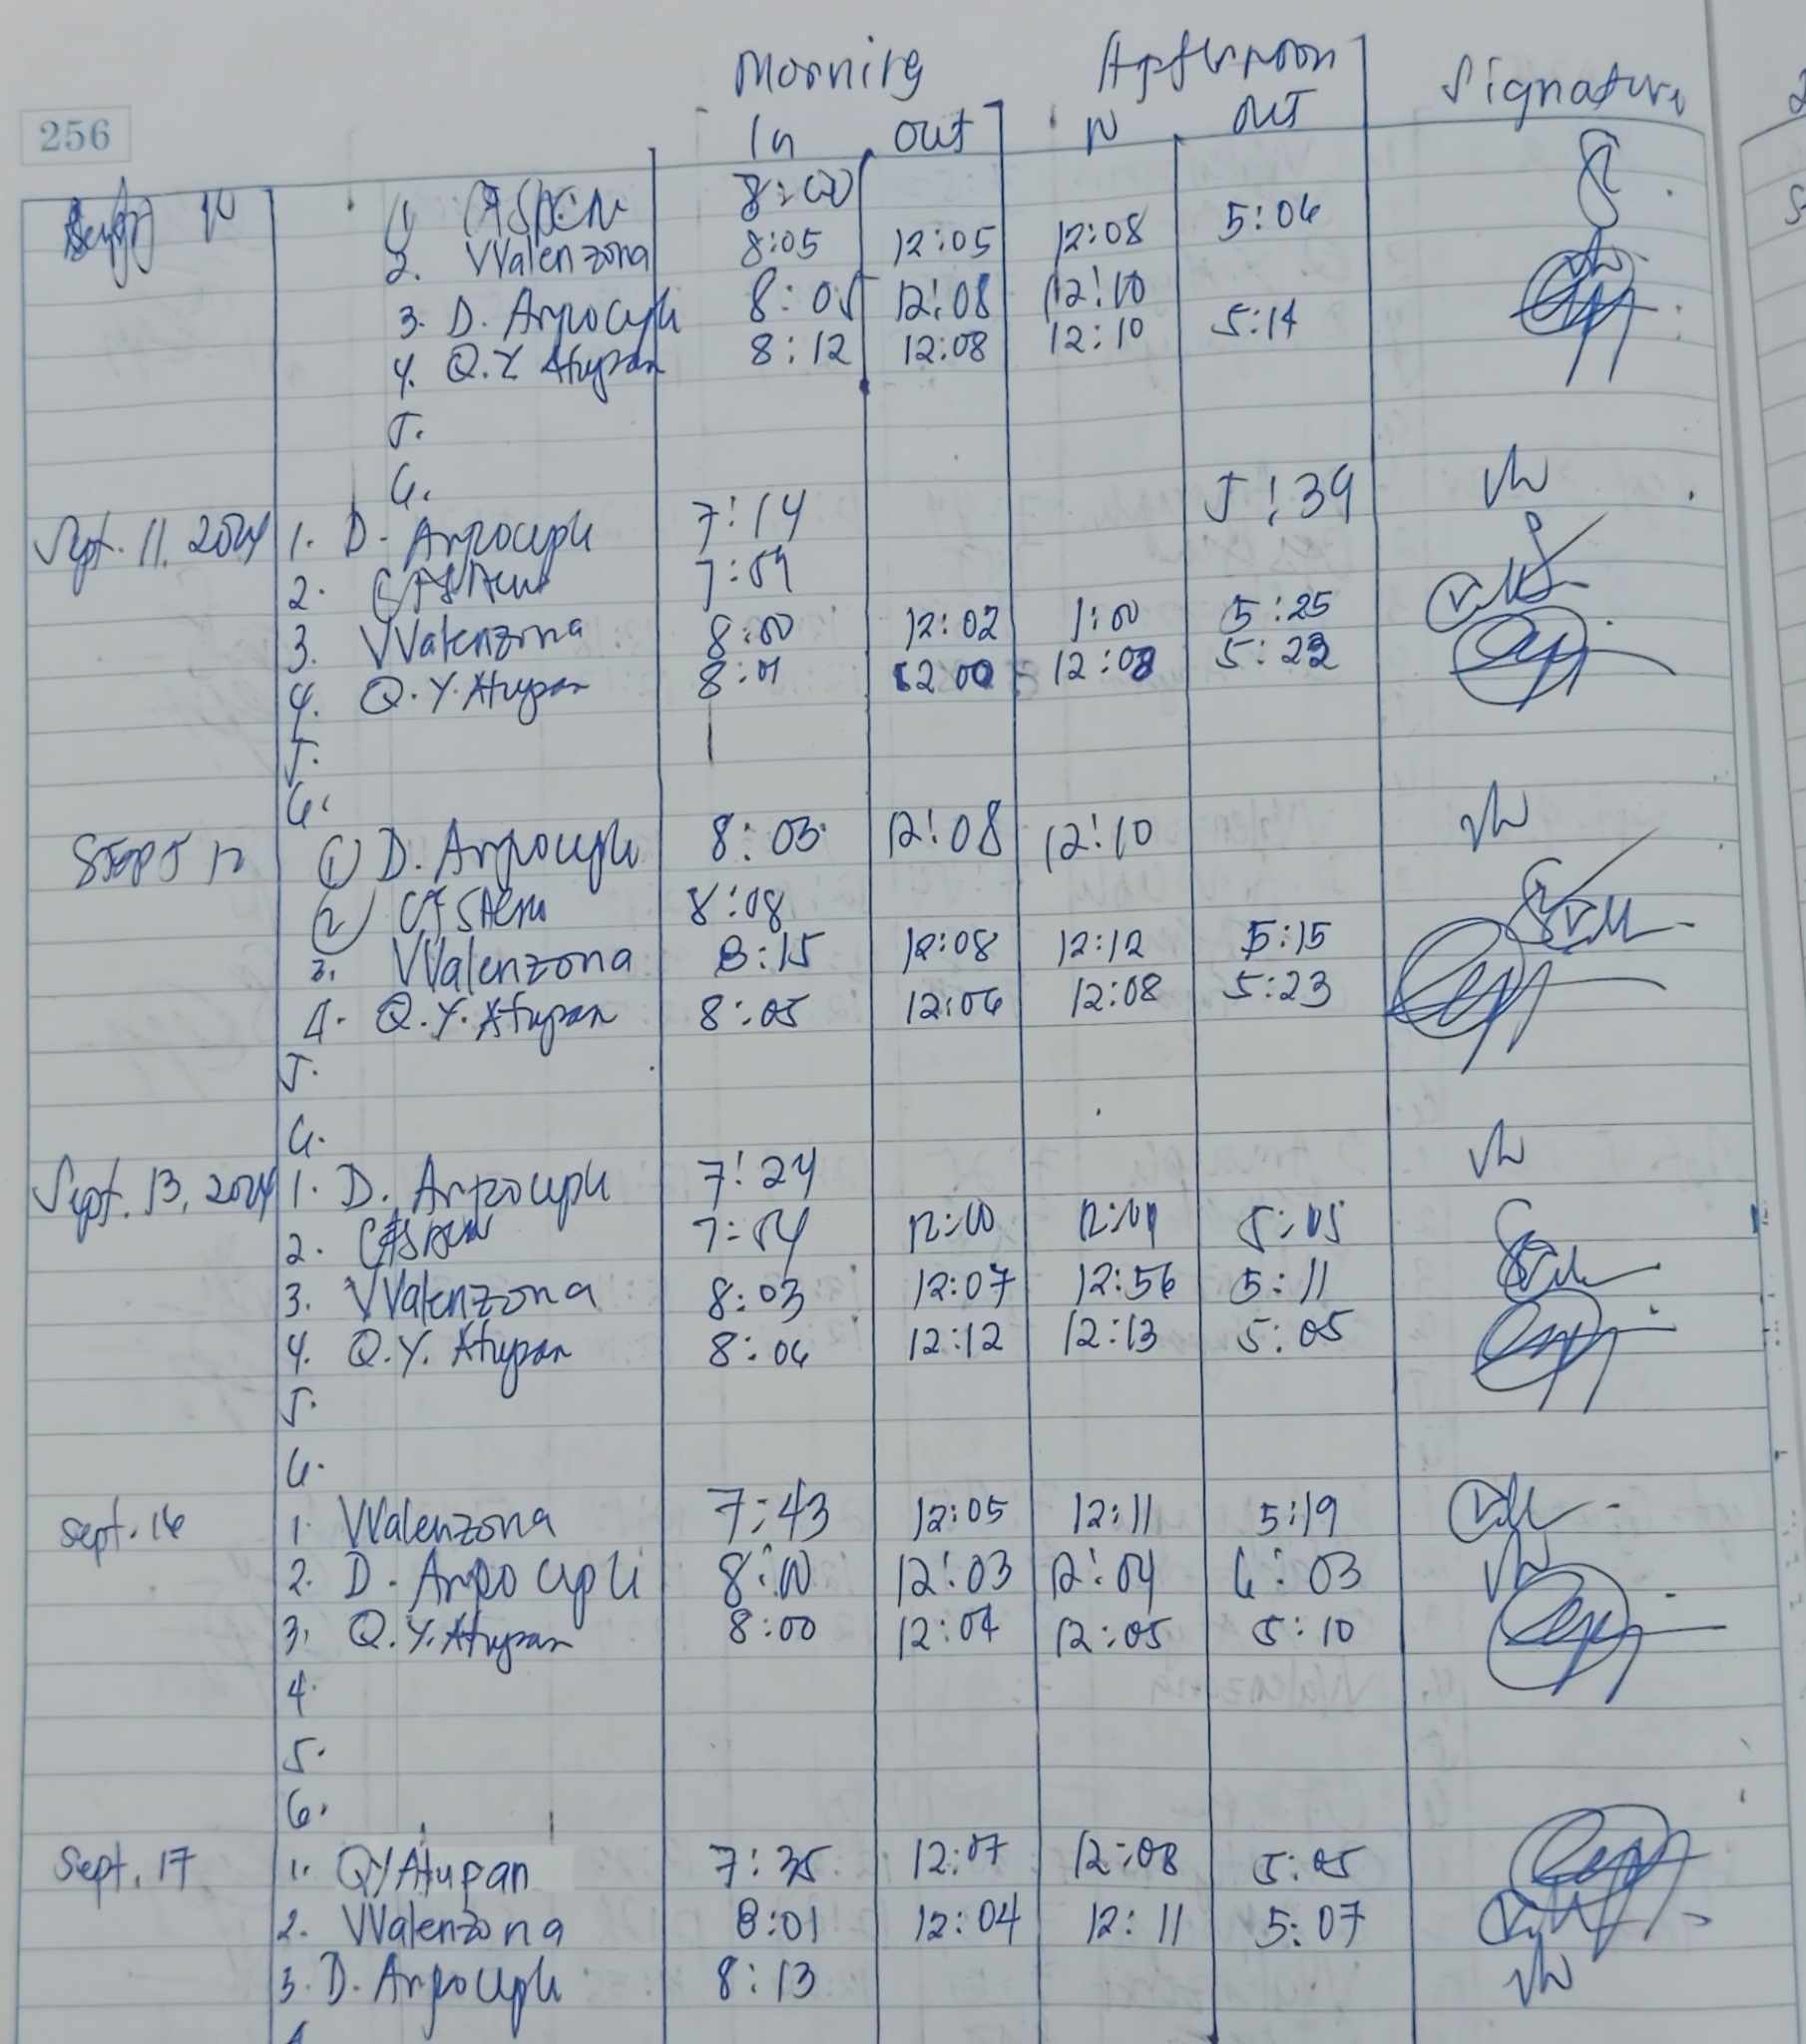 Morning Afternoon Signature
256 In out IN OUT
Sept 10 1 8:00
2. VValenzona 8:05 12:05 12:08 5:06
3. D. 8:05 12:08 12:10
4. Q.Y Atupan 8:12 12:08 12:10 5:14
5.
6.
Sept. 11, 2024 1. D. 7:14 5:39
2. 7:59
3. VValenzona 8:00 12:02 1:00 5:25
4. Q.Y. Atupan 8:01 12:00 12:08 5:22
5.
6.
SEPT 12 1 D. 8:03 12:08 12:10
2 8:08
3. VValenzona 8:15 12:08 12:12 5:15
4. Q.Y. Atupan 8:05 12:06 12:08 5:23
5.
6.
Sept. 13, 2024 1. D. 7:24
2. 7:54 12:00 12:01 5:05
3. VValenzona 8:03 12:07 12:56 5:11
4. Q.Y. Atupan 8:06 12:12 12:13 5:05
5.
6.
sept. 16 1. VValenzona 7:43 12:05 12:11 5:19
2. D. 8:00 12:03 12:04 6:03
3. Q.Y. Atupan 8:00 12:04 12:05 5:10
4.
5.
6.
Sept. 17 1. QYAtupan 7:35 12:07 12:08 5:05
2. VValenzona 8:01 12:04 12:11 5:07
3. D. 8:13